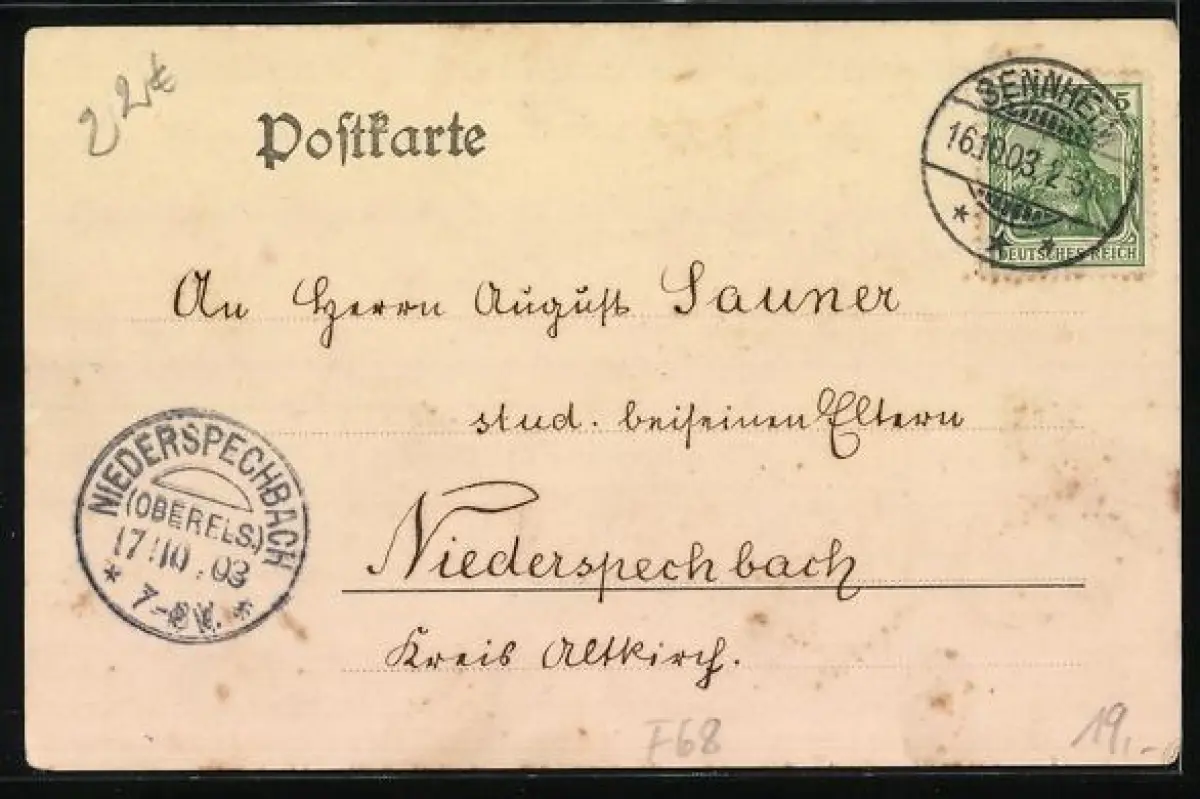 22€
Postkarte
SENNHEIM
16.10.03. 2-3
5
DEUTSCHES REICH
An Herrn August Sauner
stud. bei seinen Eltern
Niederspechbach
Kreis Altkirch.
NIEDERSPECHBACH
(OBERELS.)
17.10.03
* 7-8V. *
F68
19,-